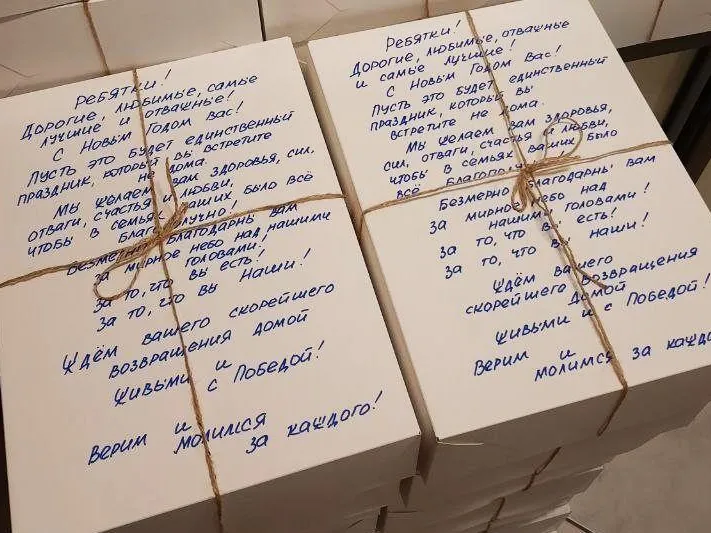 Ребятки!
Дорогие, любимые, самые
лучшие и отважные!
С Новым Годом Вас!
Пусть это будет единственный
праздник, который вы встретите
не дома.
Мы желаем вам здоровья, сил,
отваги, счастья и любви,
чтобы в семьях ваших было всё
благополучно!
Безмерно благодарны вам
за мирное небо над нашими
головами!
За то, что вы есть!
За то, что вы Наши!
Ждём вашего скорейшего
возвращения домой
живыми и
с Победой!
Верим и
молимся
за каждого!
Ребятки!
Дорогие, любимые, отважные
и самые лучшие!
С Новым Годом Вас!
Пусть это будет единственный
праздник, который вы
встретите не дома.
Мы желаем вам здоровья,
сил, отваги, счастья и любви,
чтобы в семьях ваших было
всё
Безмерно благодарны вам
за мирное небо над
нашими головами!
За то, что вы есть!
За то, что вы наши!
Ждём вашего
скорейшего возвращения
домой
живыми и с Победой!
Верим и
молимся за